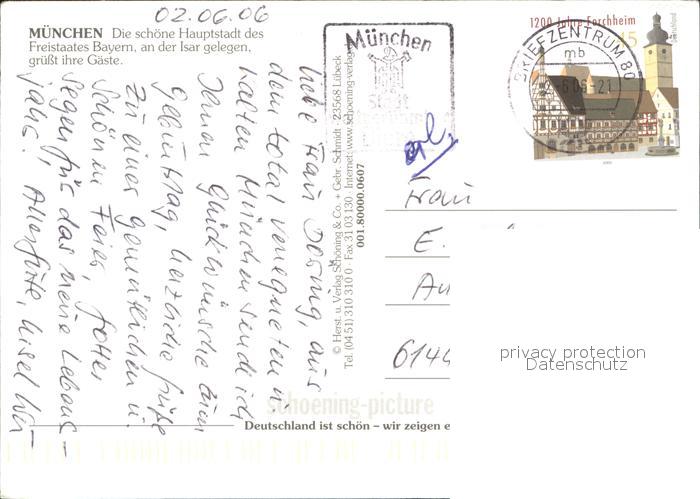 02.06.06
MÜNCHEN Die schöne Hauptstadt des
Freistaates Bayern, an der Isar gelegen,
grüßt ihre Gäste.
München
Stadt
1200 Jahre Forchheim
45
Deutschland
BRIEFZENTRUM 80
mb
-21
erl.
liebe Frau Dosing, aus
dem total verregneten u.
kalten München sende ich
Ihnen Glückwünsche zum
Geburtstag, herzliche Grüße
zu einer gemütlichen u.
schönen Feier, Gottes
Segen für das neue Lebens–
jahr! Alles Gute, Liesel
© Herst. u. Verlag Schöning & Co. + Gebr. Schmidt · 23568 Lübeck
Tel. (04 51) 310 310 0 · Fax 31 03 130 · Internet: www.schoening-verlag
001.80000.0607
Frau
E.
6144
privacy protection
Datenschutz
schoening-picture
Deutschland ist schön – wir zeigen e